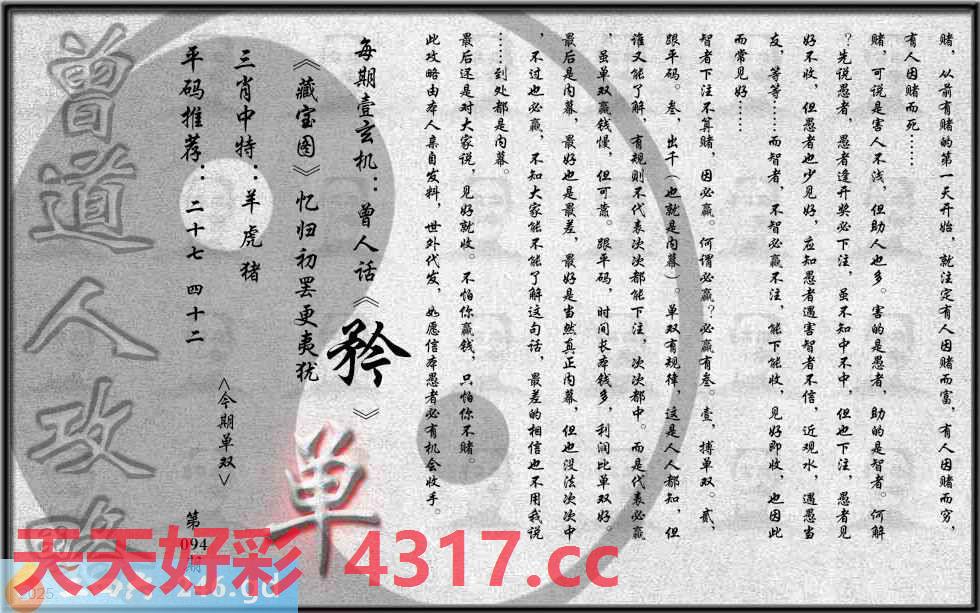 赌，从前有赌的第一天开始，就注定有人因赌而富，有人因赌而穷，
有人因赌而死……
赌，可说是害人不浅，但助人也多。害的是愚者，助的是智者。何解
？先说愚者，愚者逢开奖必下注，虽不知中不中，但也下注，愚者见
好不收，但愚者也少见好，应知愚者遇害智者不信，近观水，遇愚当
友，等等……而智者，不智必赢不注，能下能收，见好即收，也因此
而常见好……
智者下注不算赌，因必赢。何谓必赢？必赢有叁。壹，搏单双。贰，
跟平码。叁，出千（也就是内幕）。单双有规律，这是人人都知，但
谁又能了解，有规则不代表次次都能下注，次次都中。而是代表必赢
，虽单双赢钱慢，但可靠。跟平码，时间长本钱多，利润比单双好。
最后是内幕，最好也是最差，最好是当然真正内幕，但也没法次次中
，不过也必赢，不知大家能不能了解这句话，最差的相信也不用我说
……到处都是内幕。
最后还是对大家说，见好就收。不怕你赢钱，只怕你不赌。
此攻略由本人亲自发料，世外代发，如愿信本愚者必有机会收手。
每期壹玄机：曾人话《矜》
《藏宝图》忆归初罢更夷犹
三肖中特：羊虎猪
平码推荐：二十七 四十二
<今期单双>
单
第094期
曾道人攻略
天天好彩 4317.cc
2025
246.gd